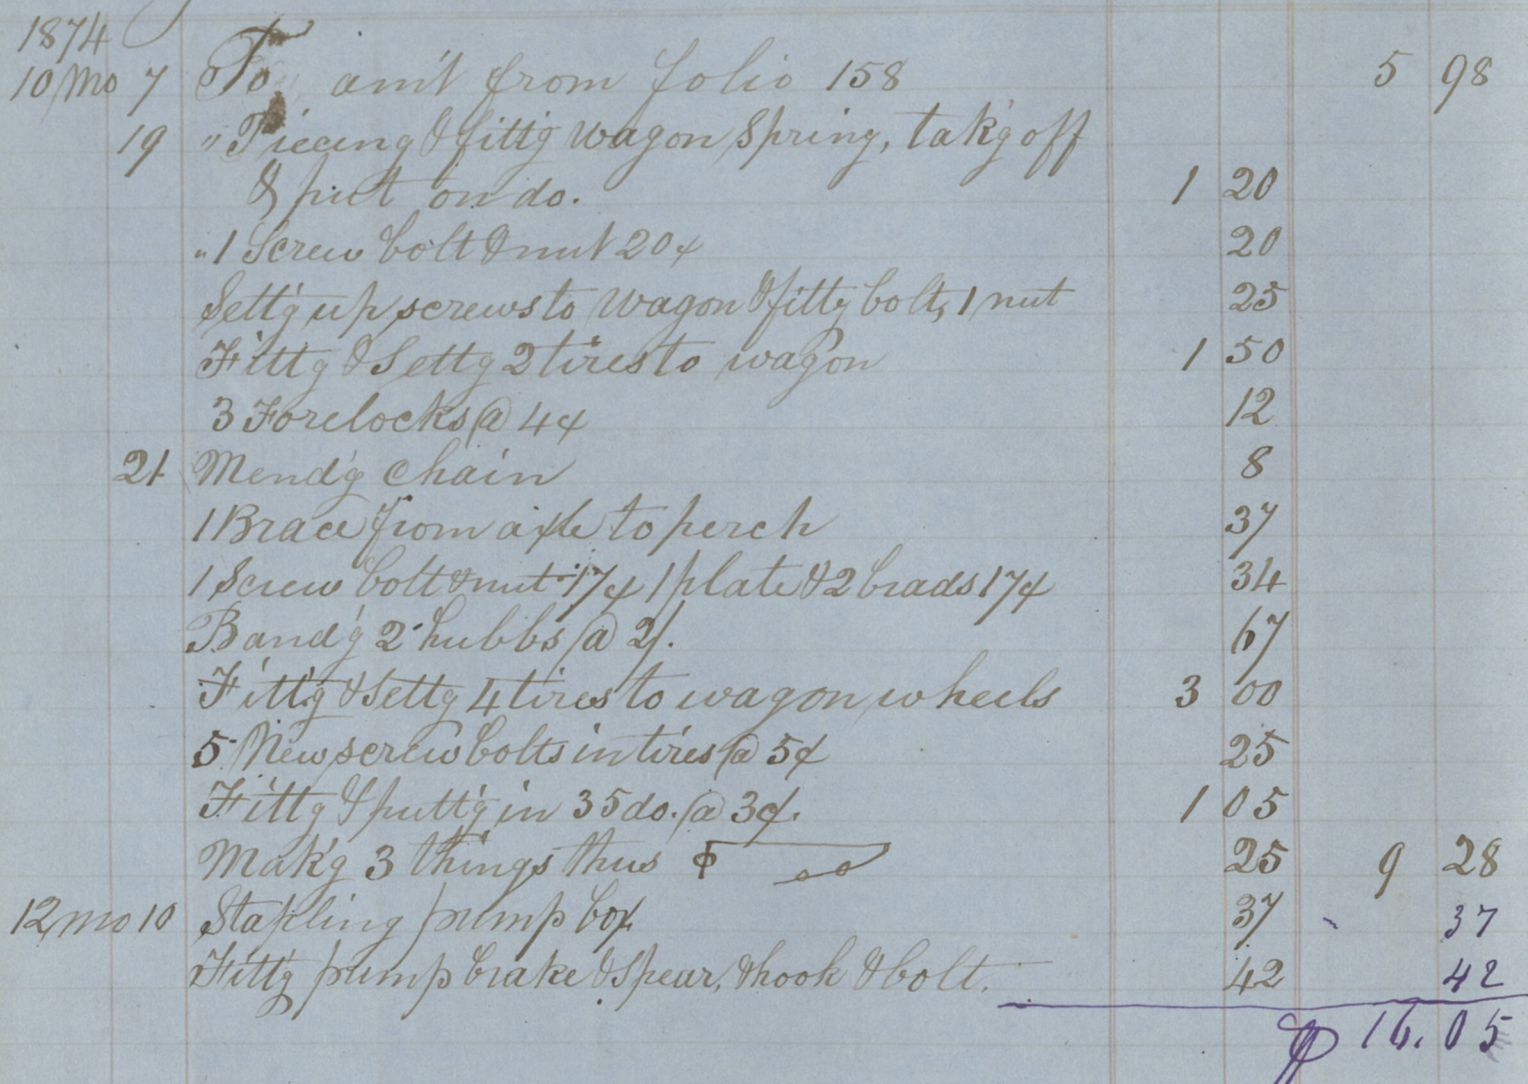 1874
10 Mo 7 To am't from folio 158 5 98
19 " Piecing & fitt'g wagon Spring, tak'g off
& put on do. 1 20
" 1 Screw bolt & nut 20¢ 20
Sett'g up screws to wagon & fittg bolt, 1 nut 25
Fittg & Settg 2 tires to wagon 1 50
3 Forelocks @ 4¢ 12
21 Mend'g Chain 8
1 Brace from axle to perch 37
1 Screw bolt & nut 17¢ 1 plate & 2 brads 17¢ 34
Band'g 2 hubbs @ 2/. 67
Fitt'g & Settg 4 tires to wagon wheels 3 00
5 New screw bolts in tires @ 5¢ 25
Fittg & putt'g in 35 do. @ 3¢. 1 05
Mak'g 3 things thus 25 9 28
12 mo 10 Stapling pump box 37 37
Fitt'g pump brake & spear, & hook & bolt. 42 42
16.05